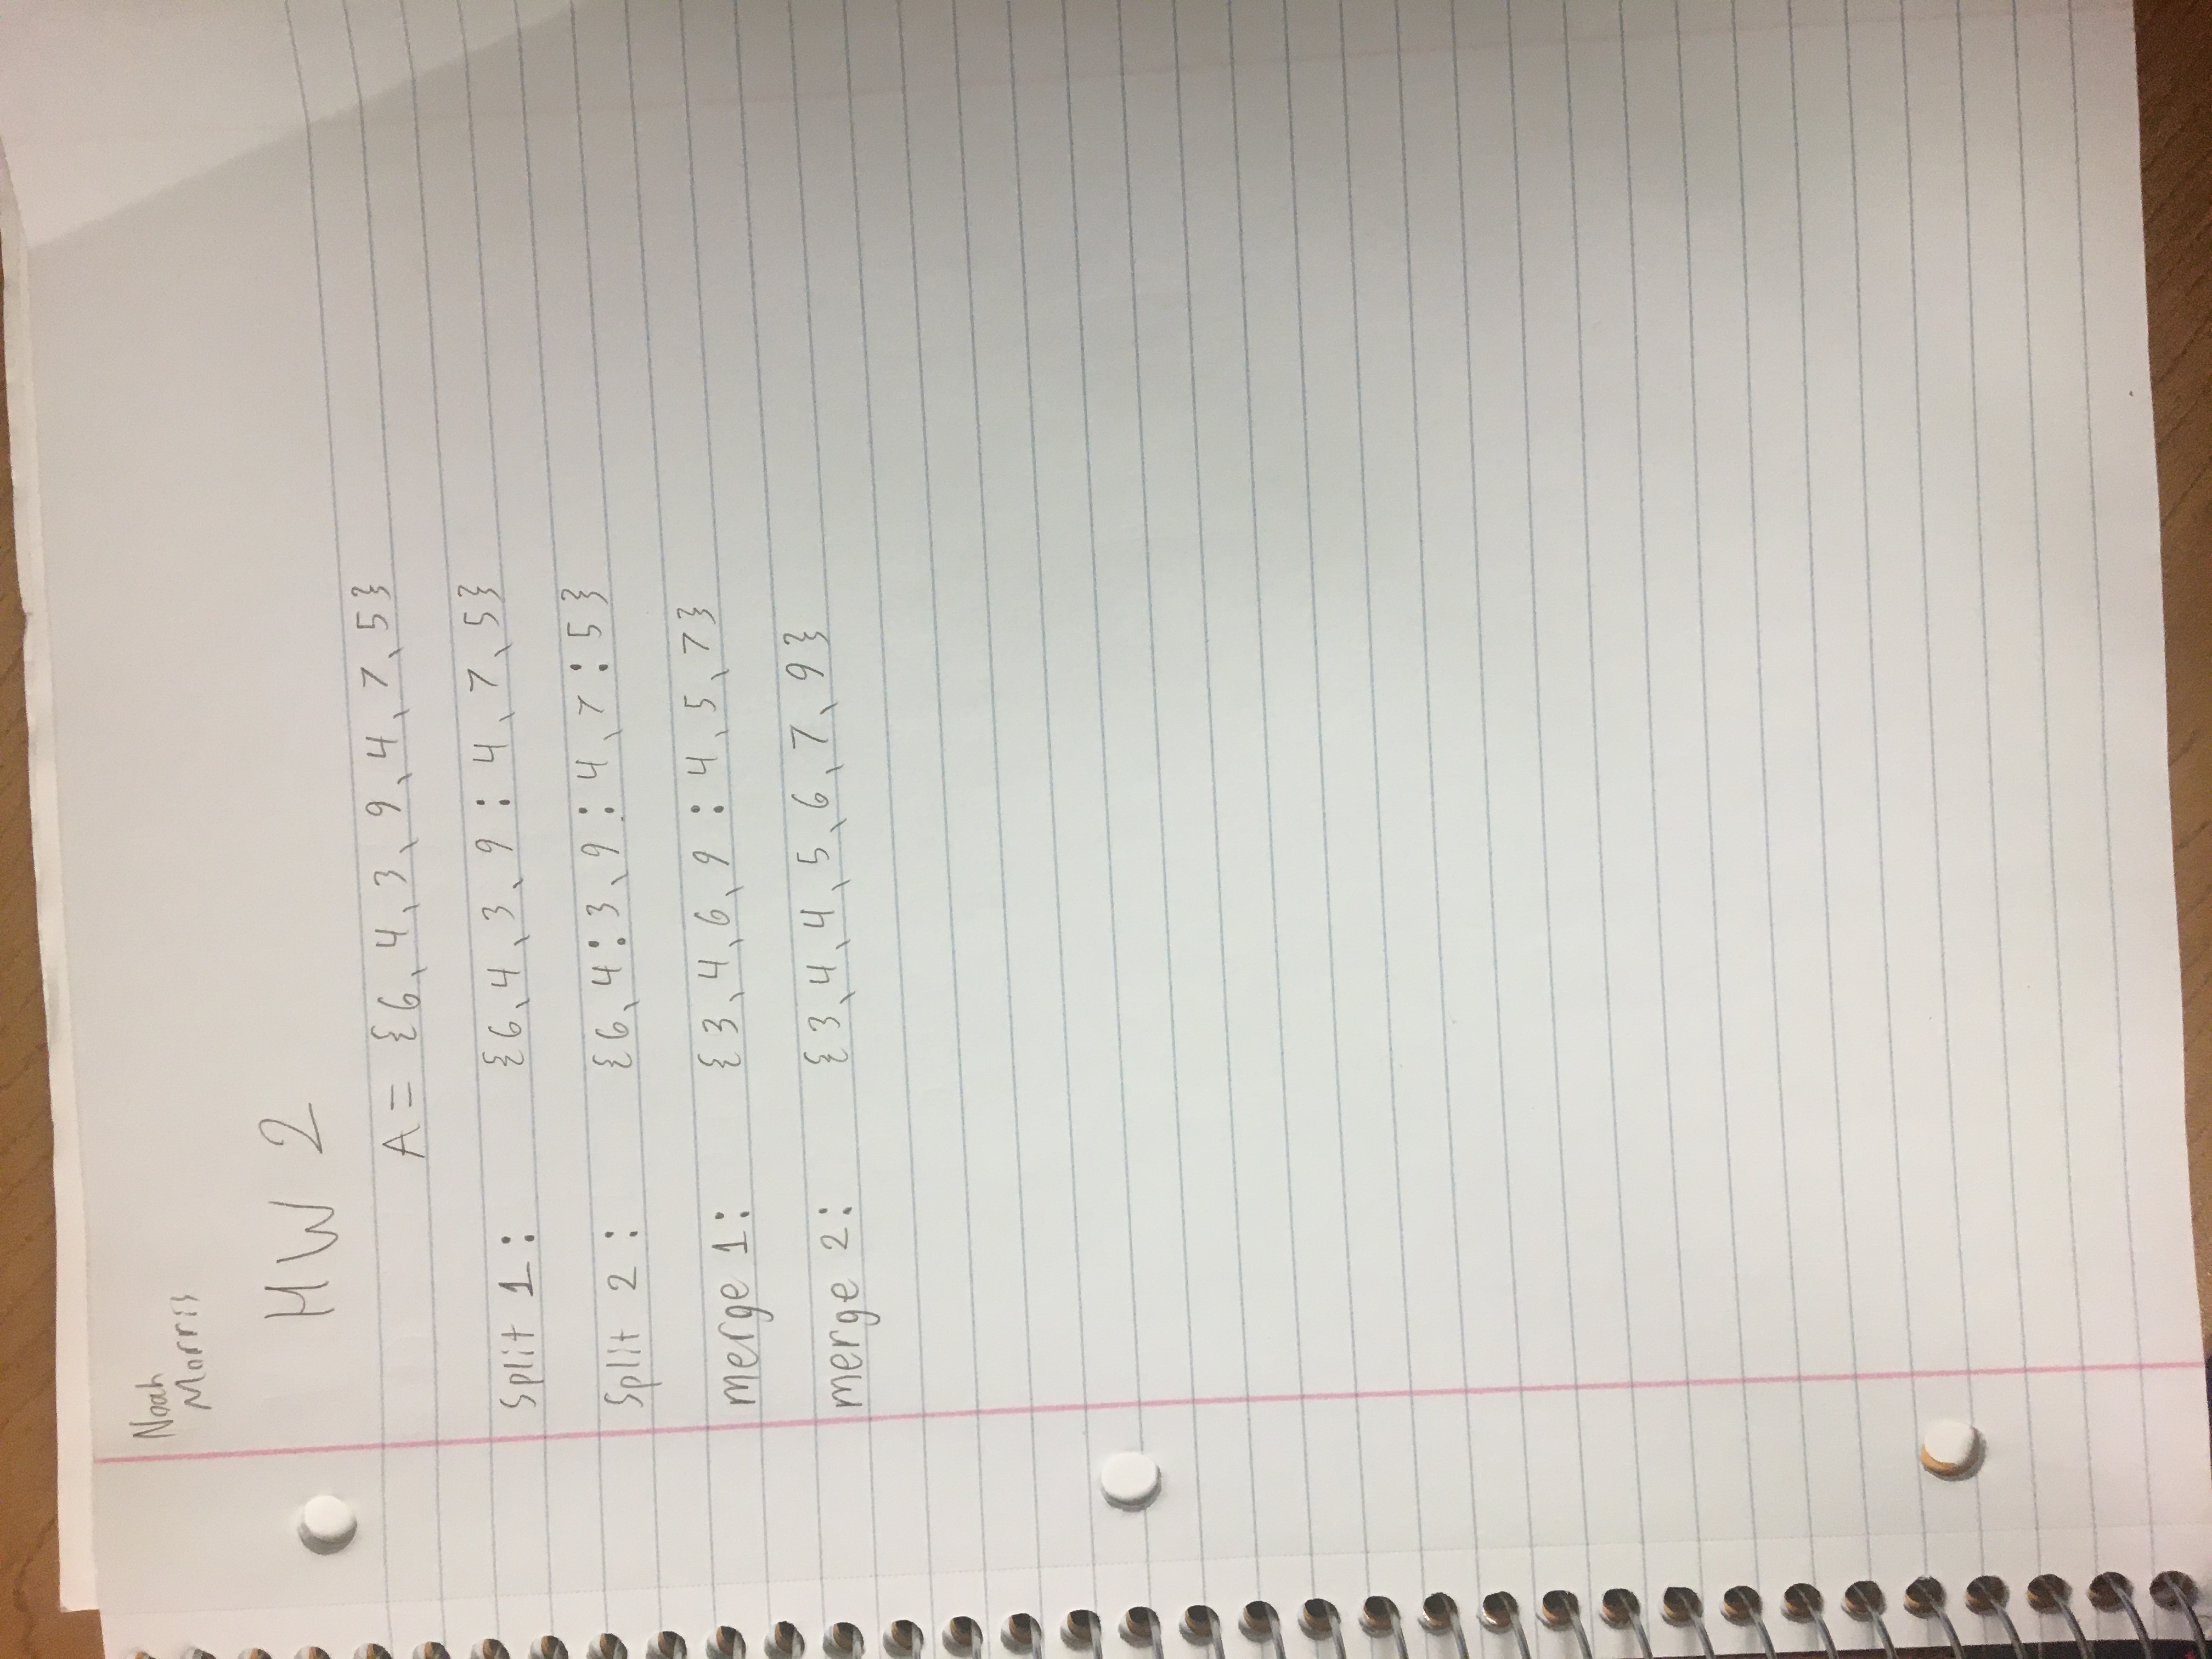 Noah
Morris
HW 2
A = {6, 4, 3, 9, 4, 7, 5}
Split 1: {6, 4, 3, 9 : 4, 7, 5}
Split 2: {6, 4 : 3, 9 : 4, 7 : 5}
merge 1: {3, 4, 6, 9 : 4, 5, 7}
merge 2: {3, 4, 4, 5, 6, 7, 9}